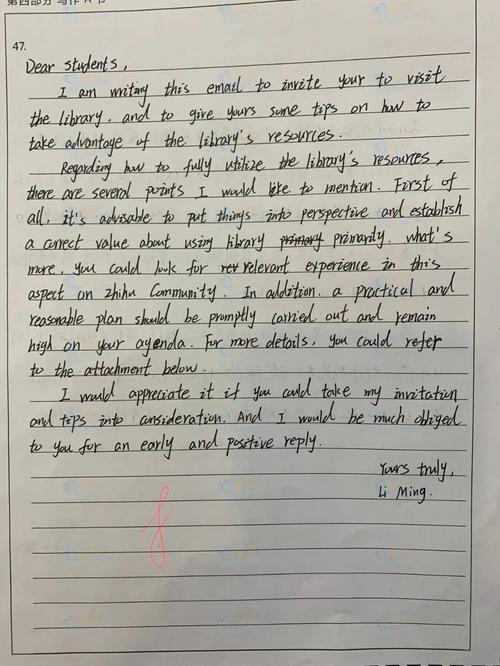 47.
Dear students,
I am writing this email to invite your to visit
the library, and to give yours some tips on how to
take advantage of the library's resources.
Regarding how to fully utilize the library's resources,
there are several points I would like to mention. First of
all, it's advisable to put things into perspective and establish
a correct value about using library primary primarily. what's
more, you could look for rev relevant experience in this
aspect on zhihu Community. In addition, a practical and
reasonable plan should be promptly carried out and remain
high on your agenda. For more details, you could refer
to the attachment below.
I would appreciate it if you could take my invitation
and tips into consideration. And I would be much obliged
to you for an early and positive reply.
Yours truly,
Li Ming.